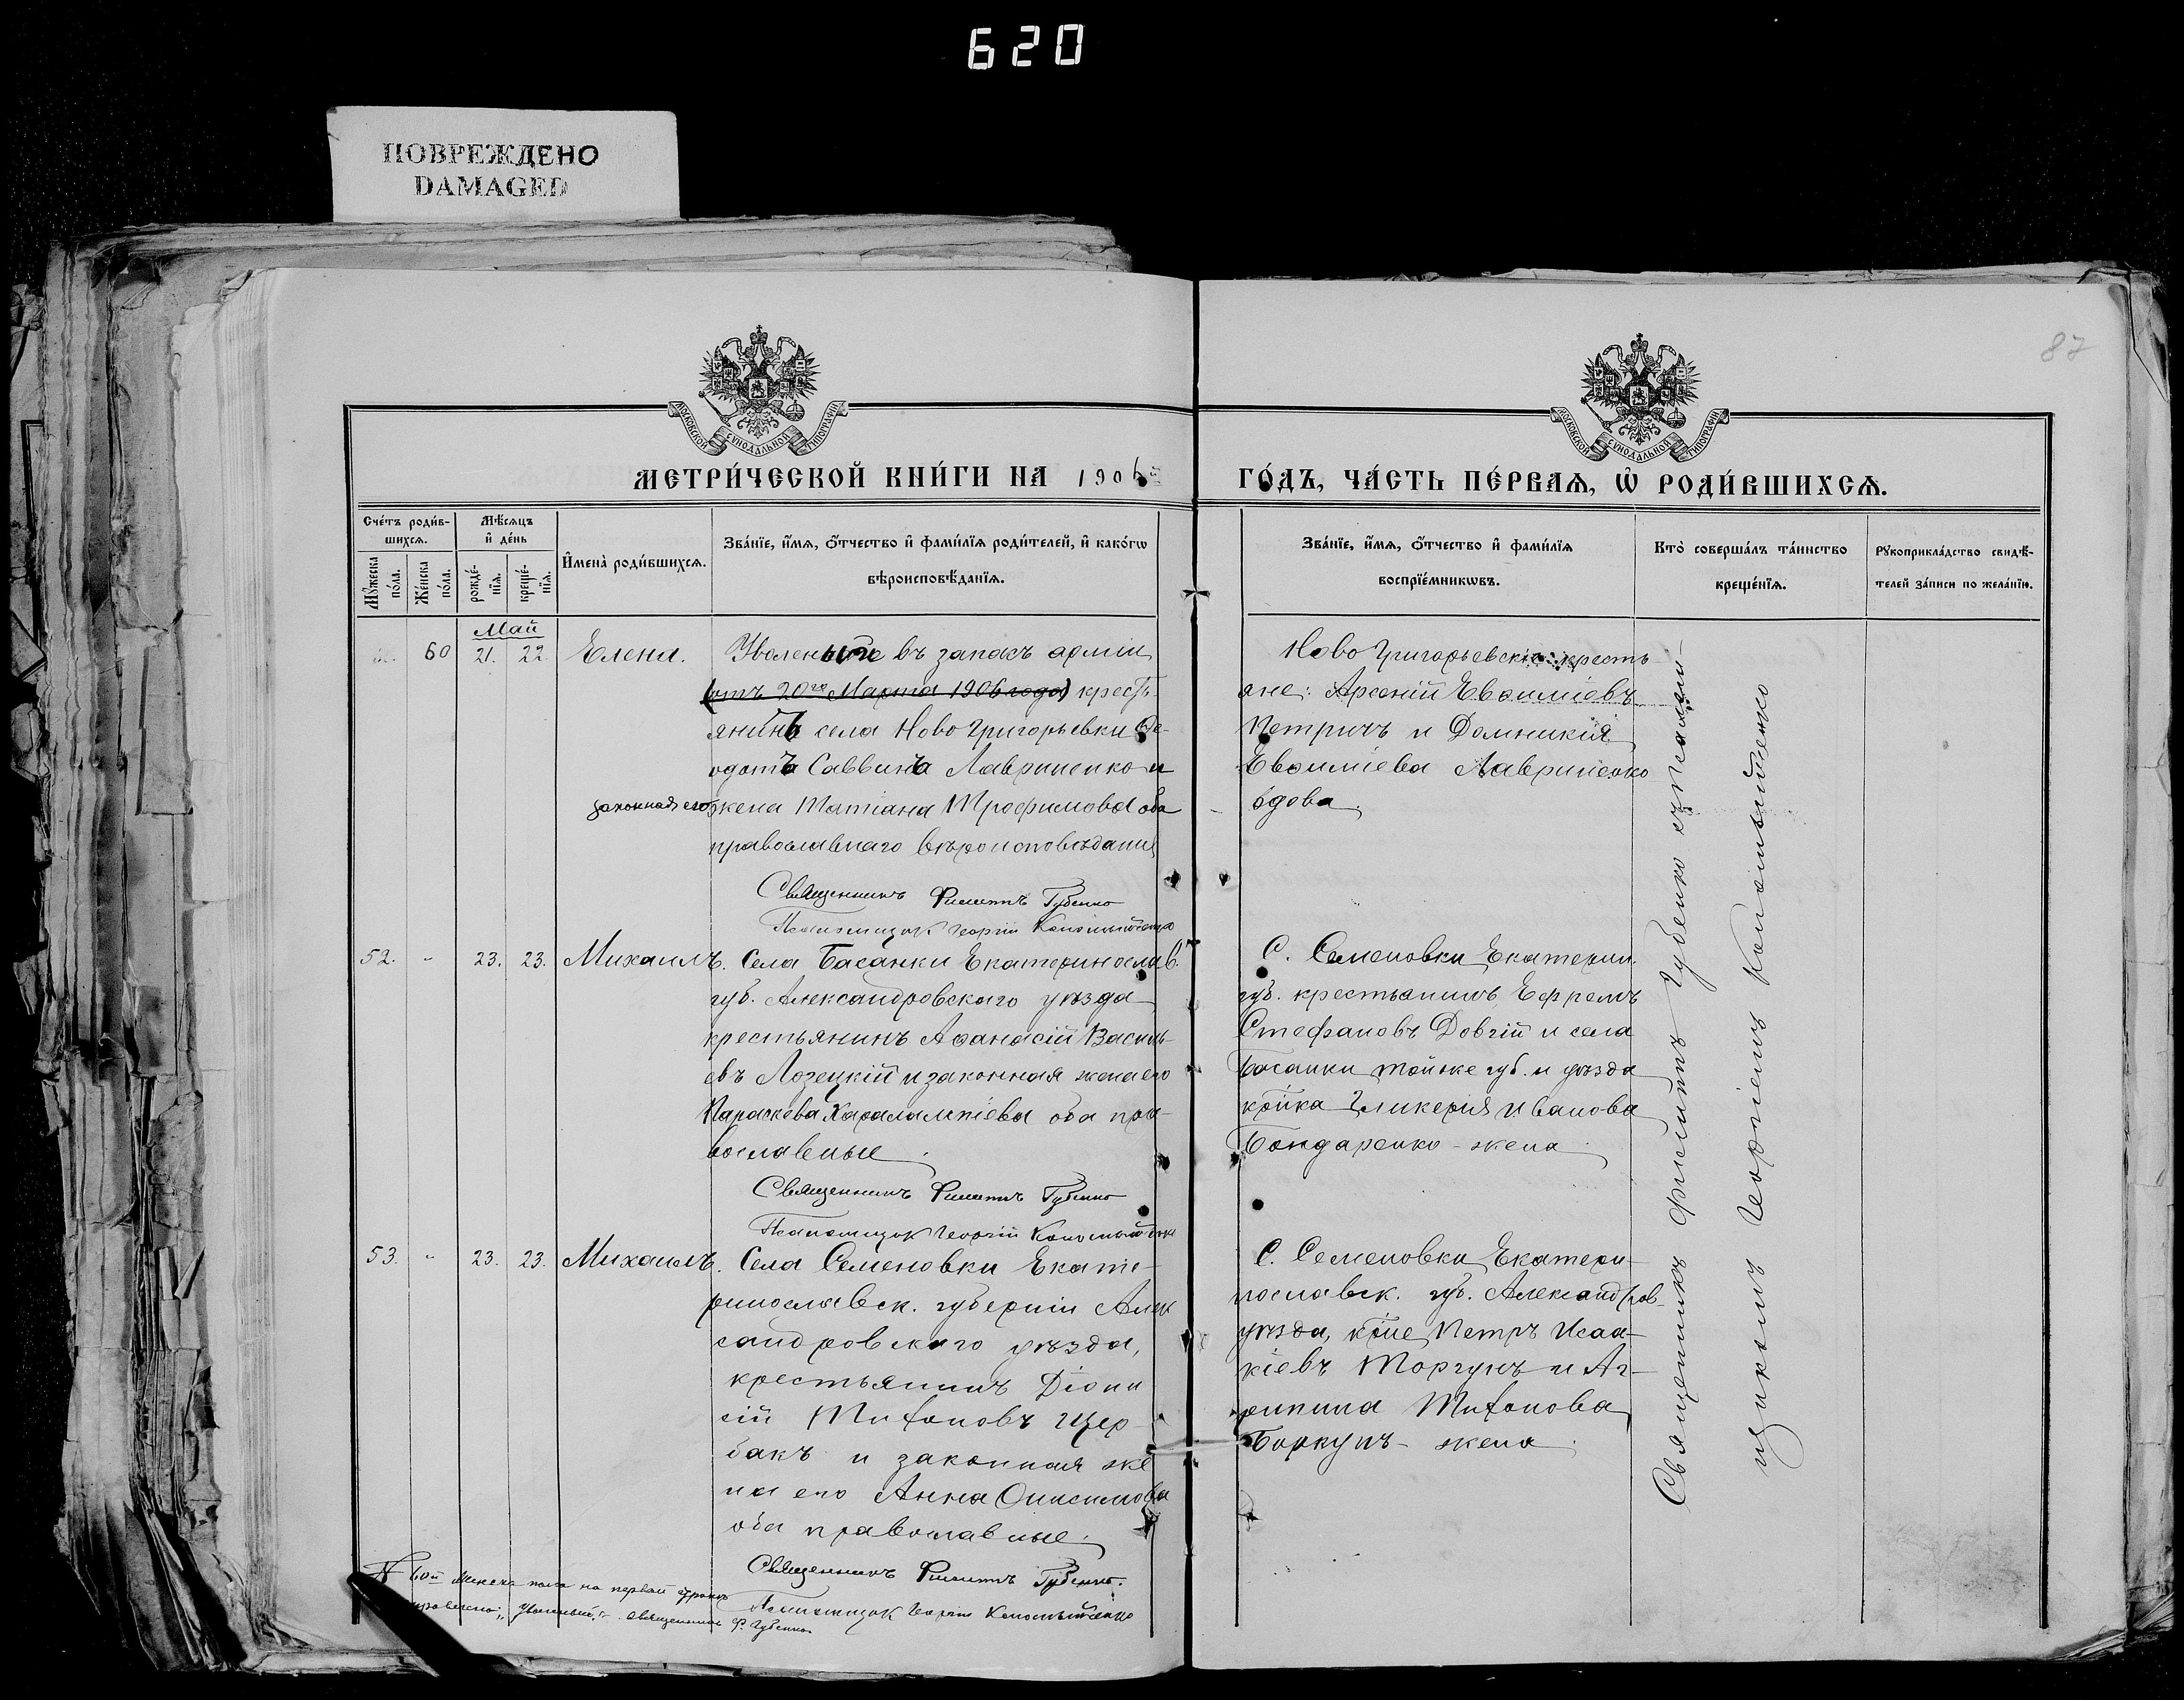 620
ПОВРЕЖДЕНО
DAMAGED
87
МОСКОВСКОЙ СѴНОДАЛЬНОЙ ТИПОГРАФИИ
МОСКОВСКОЙ СѴНОДАЛЬНОЙ ТИПОГРАФИИ
МЕТРИ́ЧЕСКОЙ КНИ́ГИ НА 1906й
ГО́ДЪ, ЧА́СТЬ ПЕ́РВАѦ, Ѡ РОДИ́ВШИХСѦ.
Сче́тъ роди́в-
шихсѧ.
Мꙋ́жеска по́ла.
Же́нска по́ла.
Мѣ́сѧцъ
и҆ де́нь
рожде́-
нїѧ.
креще́-
нїѧ.
И҆мена̀ роди́вшихсѧ.
Зва́нїе, и҆́мѧ, ѻ҆́тчество и҆ фами́лїѧ роди́телей, и҆ како́гѡ
вѣроисповѣ́данїѧ.
Зва́нїе, и҆́мѧ, ѻ҆́тчество и҆ фами́лїѧ
воспрїе́мникѡвъ.
Кто̀ соверша́лъ та́инство
креще́нїѧ.
Рꙋкоприкла́дство свидѣ́-
телей за́писи по жела́нїю.
Май
60 21. 22. Елена.
Уволенный въ запасъ арміи
(отъ 20го Марта 1906 года) кресть-
янинъ села Ново Григорьевки Ѳе-
одотъ Саввинъ Лавриненко и
законная его жена Татіана Трофимова оба
православнаго вѣроисповѣданія
Священникъ Филиппъ Губенко
Псаломщик Георгій Коломыйченко
Ново Григорьевскіе кресть-
яне: Арсеній Евѳиміевъ
Петричъ и Домникія
Евѳиміева Лавриненко
вдова
52. " 23. 23. Михаилъ.
Села Басанки Екатеринослав.
губ. Александровскаго уѣзда
крестьянинъ Аѳанасій Василь-
евъ Лозецкій и законная жена его
Параскева Харалампіева оба пра-
вославные.
Священникъ Филиппъ Губенко
Псаломщик Георгій Коломыйченко
С. Семеновки Екатерин.
губ. крестьянинъ Ефремъ
Стефановъ Довгій и села
Басанки той же губ. и уѣзда
кр̃йка Гликерія Иванова
Бондаренко - жена
53. " 23. 23. Михаилъ.
Села Семеновки Екате-
ринославск. губерніи Алек
сандровскаго уѣзда,
крестьянинъ Діони
сій Тихоновъ Щер-
бакъ и законная же
на его Анна Онисимова
оба православные.
Священникъ Филиппъ Губенко.
Псаломщик Георгій Коломыйченко
С. Семеновки Екатери-
нославск. губ. Александров-
уѣзда, кр̃не Петръ Исаа-
кіевъ Моргунъ и Аг-
рипина Тихонова
Боркунъ - жена.
Священникъ Филиппъ Губенко съ псалом-
щикомъ Георгіемъ Коломыйченко
60й Женска пола на первой строкѣ
"Уволенный". Священникъ Ф. Губенко